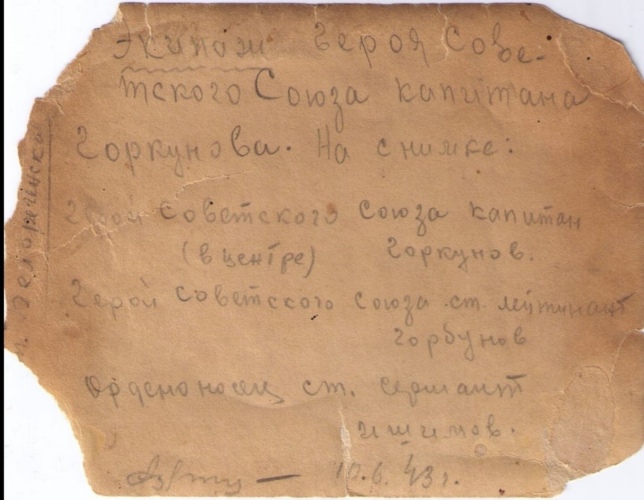 Экипаж Героя Сове-
тского Союза капитана
Горкунова. На снимке:
Герой Советского Союза капитан
(в центре) Горкунов.
Герой Советского Союза ст. лейтинант
Горбунов
Орденоносец ст. сержант
Ишимов.
10.6.43г.